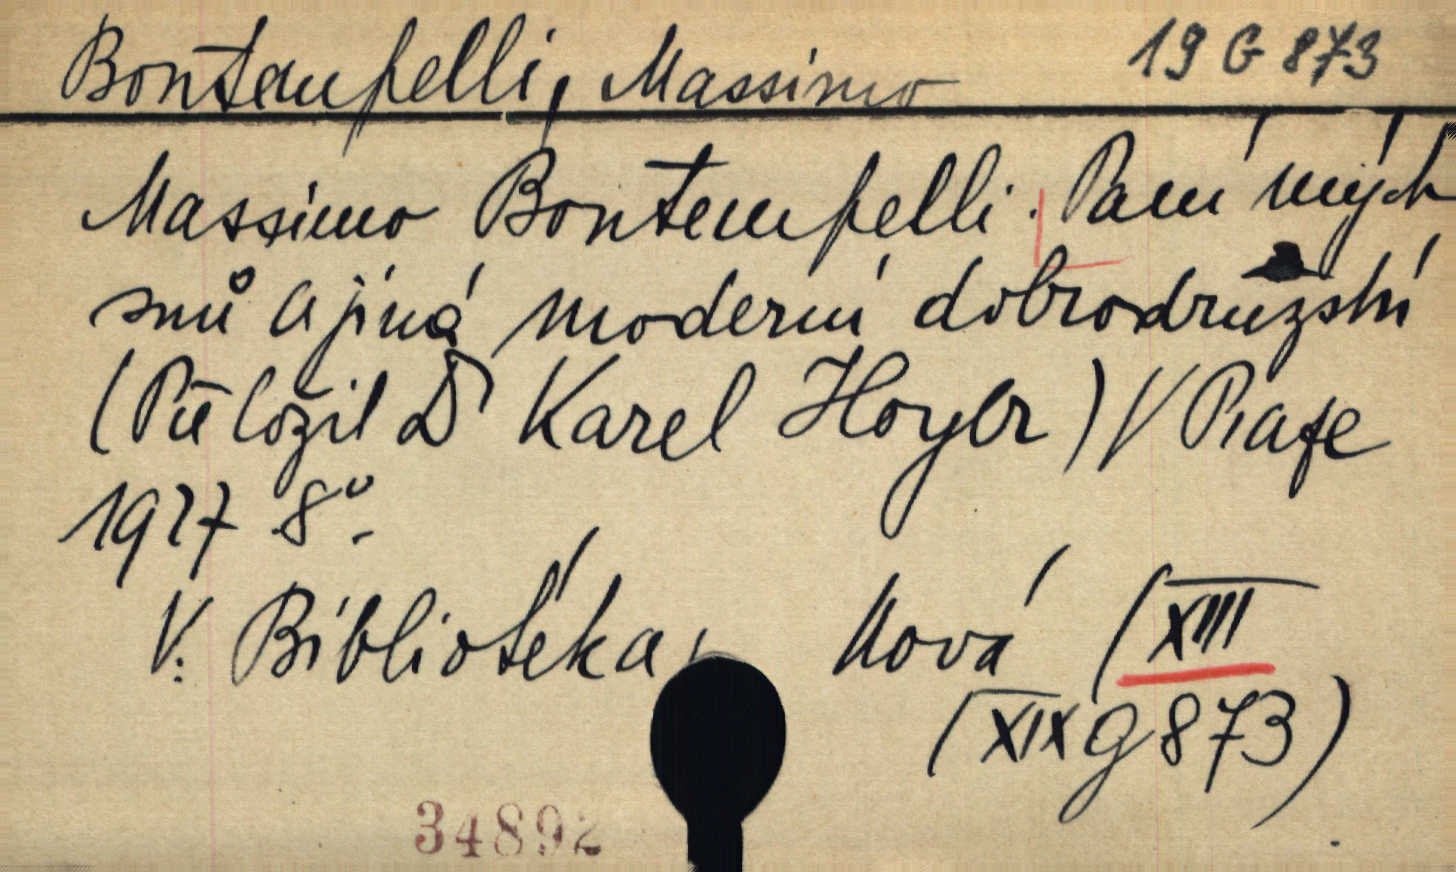 Bontempelli, Massimo 19 G 873
Massimo Bontempelli. Paní mých
snů a jiná moderní dobrodružství
(Přeložil Dr Karel Hoyer) V Praze
1927 8°.
V: Bibliotéka, Nová (XIII
(XIX G 873)
34892